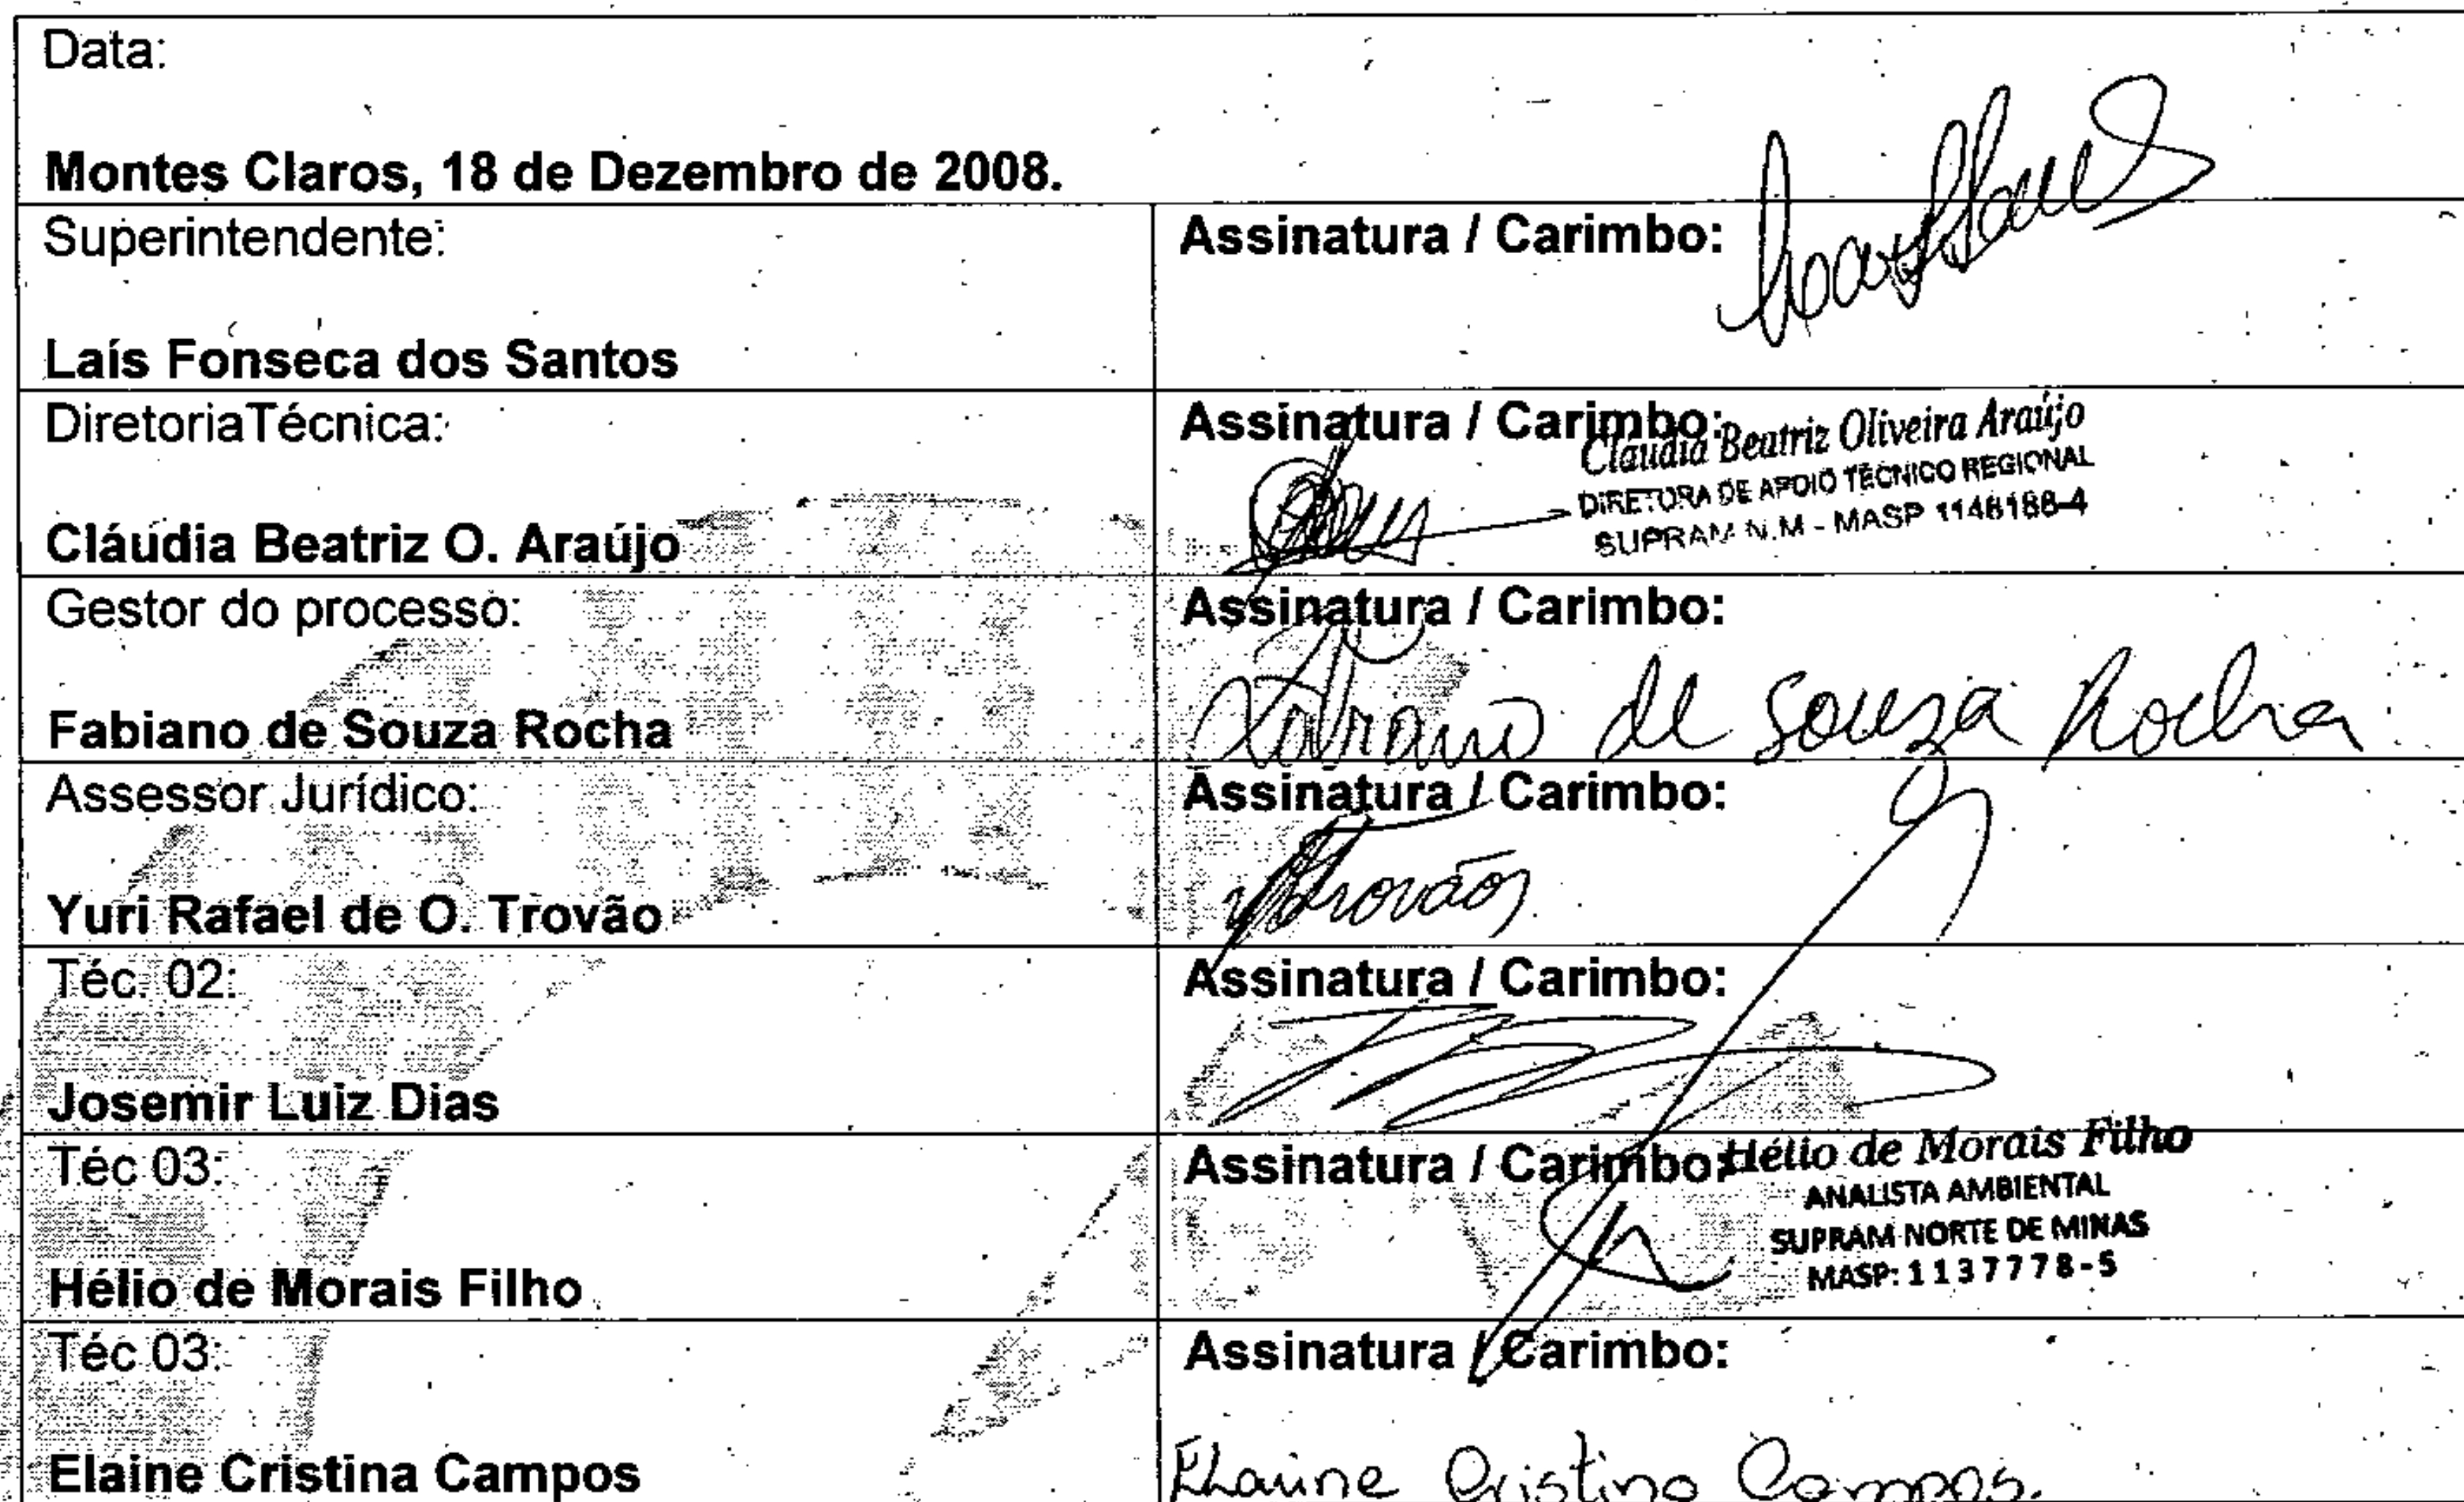 Data:
Montes Claros, 18 de Dezembro de 2008.
Superintendente:
Laís Fonseca dos Santos
Assinatura / Carimbo:
DiretoriaTécnica:
Cláudia Beatriz O. Araújo
Assinatura / Carimbo:
Claudia Beatriz Oliveira Araújo
DIRETORA DE APOIO TÉCNICO REGIONAL
SUPRAM N.M - MASP 1148188-4
Gestor do processo:
Fabiano de Souza Rocha
Assinatura / Carimbo:
Fabiano de Souza Rocha
Assessor Jurídico:
Yuri Rafael de O. Trovão
Assinatura / Carimbo:
Trovão
Téc. 02:
Josemir Luiz Dias
Assinatura / Carimbo:
Téc 03:
Hélio de Morais Filho
Assinatura / Carimbo:
Hélio de Morais Filho
ANALISTA AMBIENTAL
SUPRAM NORTE DE MINAS
MASP: 1137778-5
Téc 03:
Elaine Cristina Campos
Assinatura / Carimbo:
Elaine Cristina Campos.